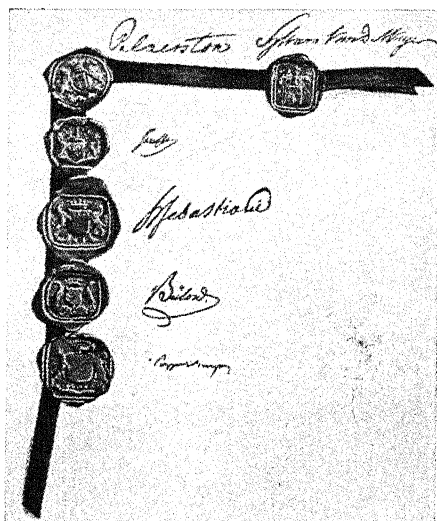 Palmerston Sylvain Van de Weyer
Senfft
H Sebastiani
Bülow